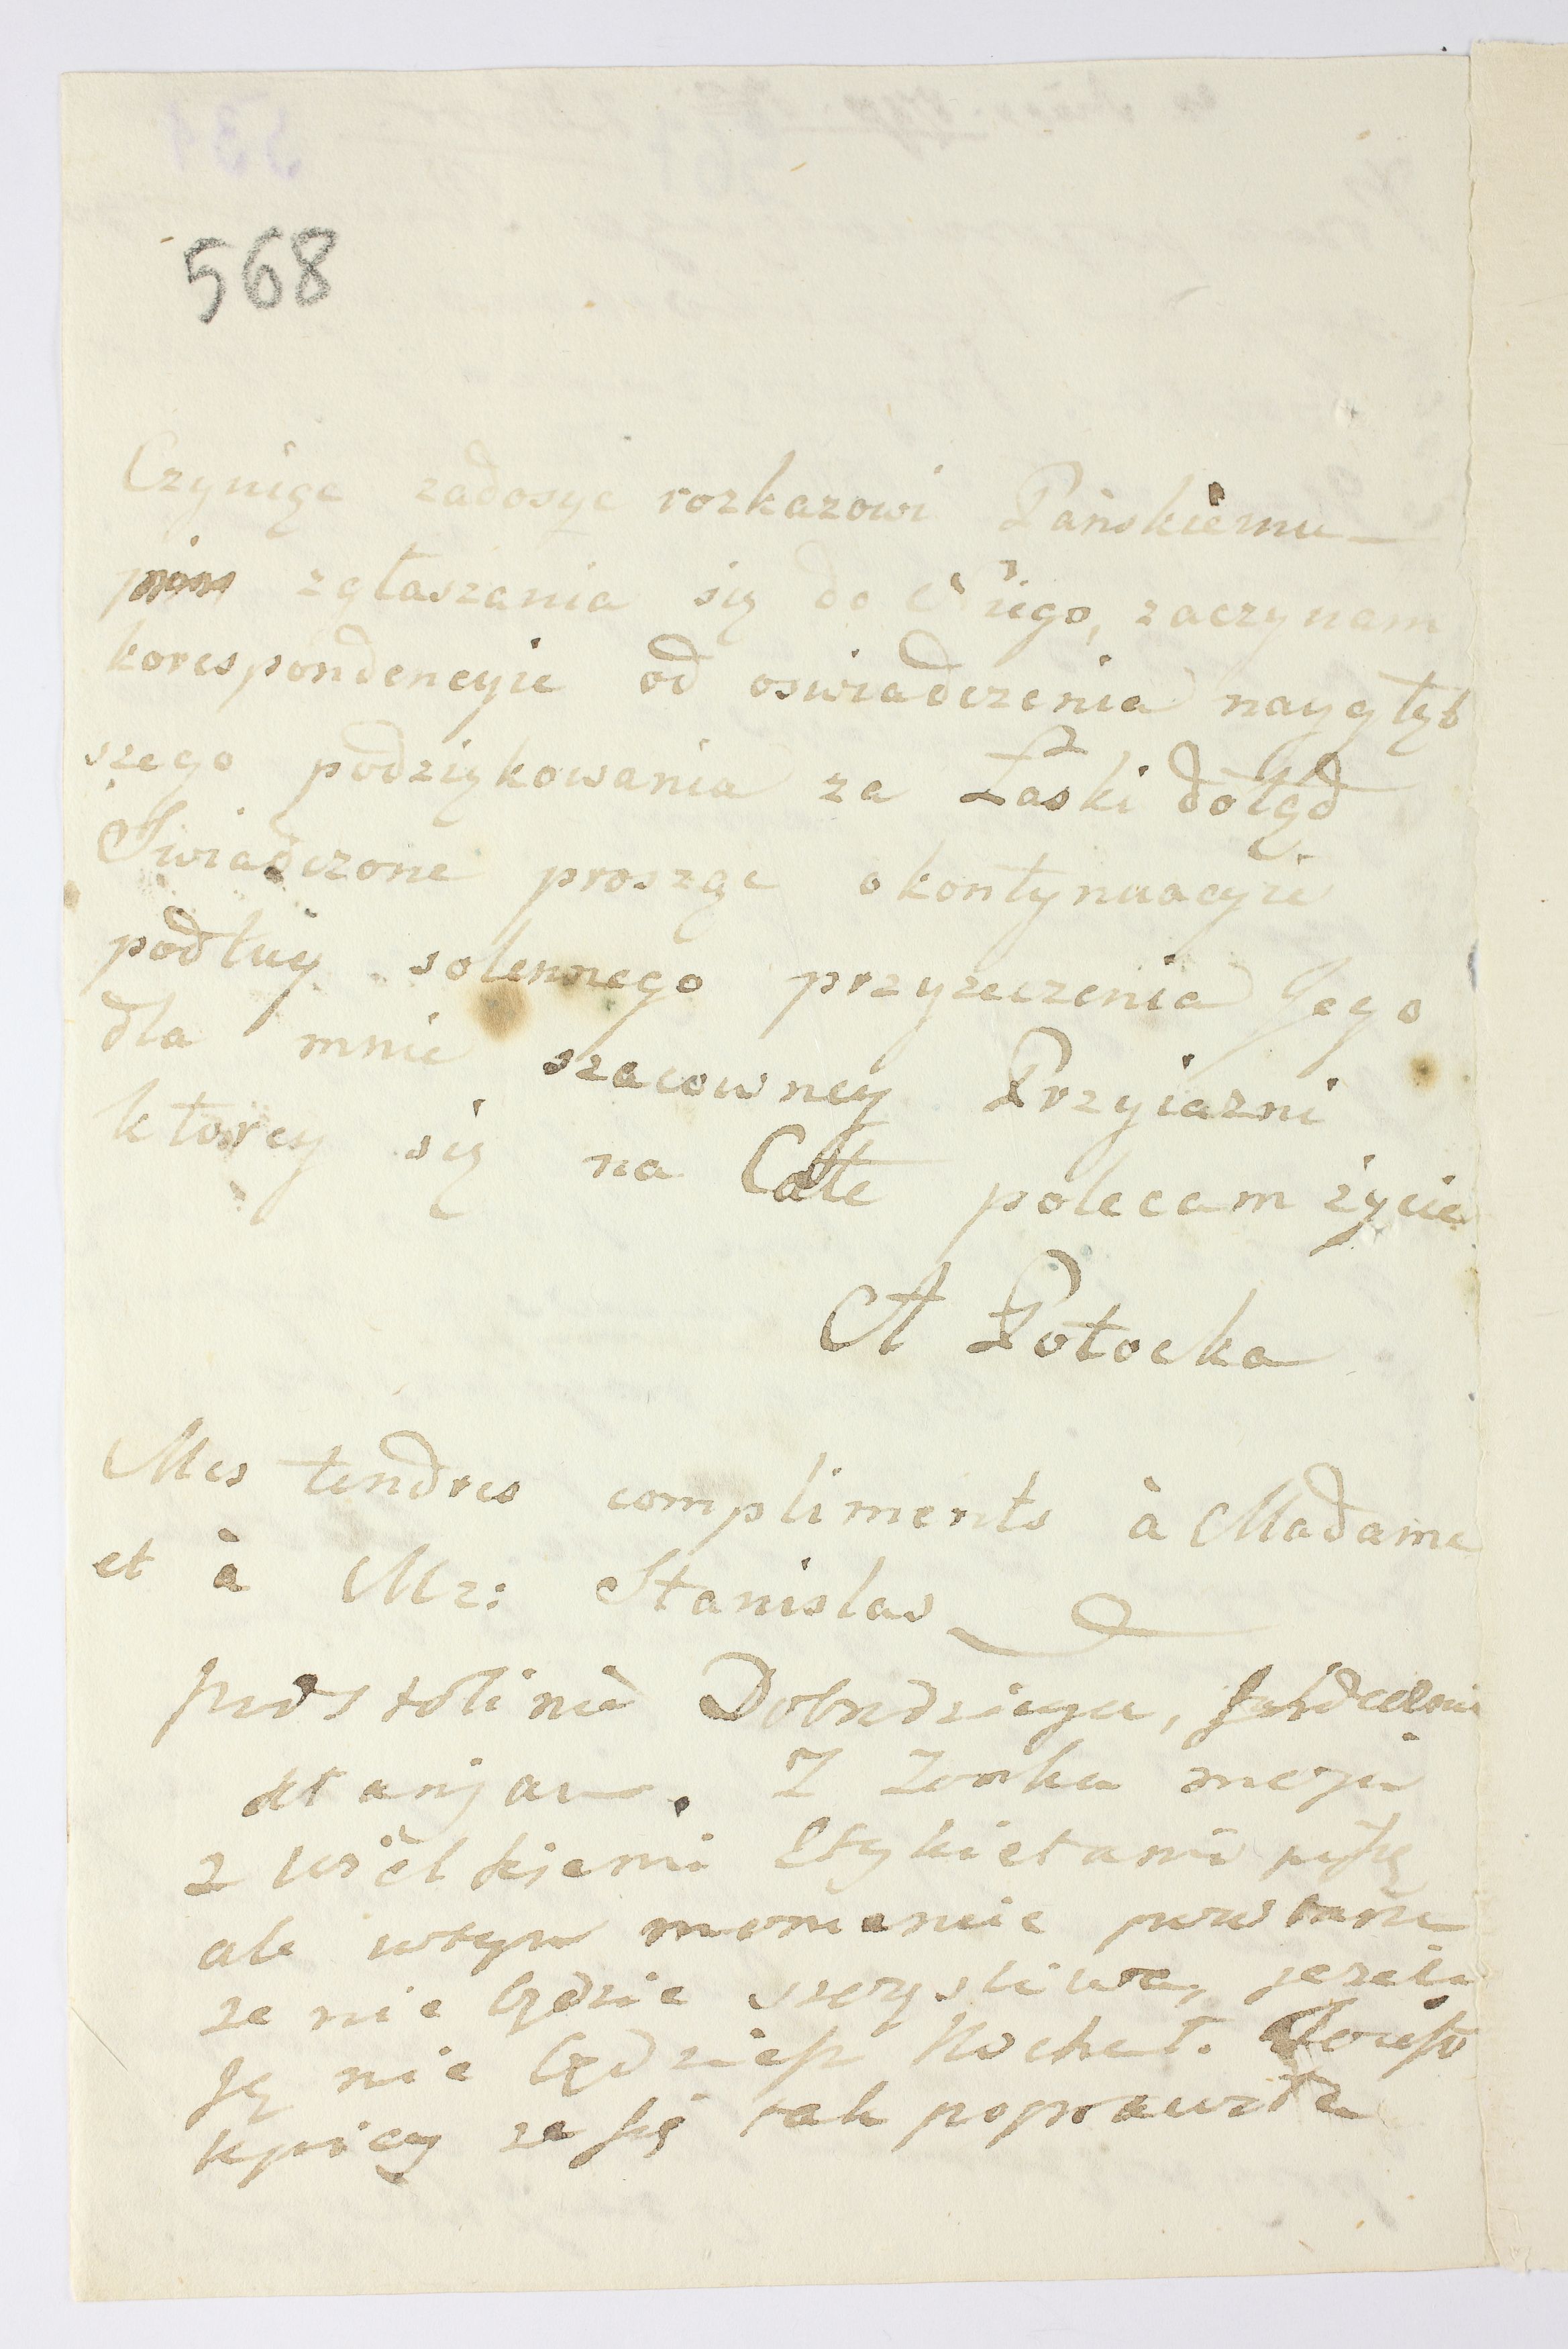 568
Czyniąc zadosyc rozkazowi Pańskiemu
zgłaszania się do Niego, zaczynam
korespondencyie od oswiadczenia naygłęb
szego podziękowania za Łaski dotąd
Swiadczone prosząc o kontynuacyie
podług solennego przyrzeczenia Jego
dla mnie szacowney Przyiazni
ktorey się na Całe polecam życie
A Potocka
Mes tendres compliments à Madame
et à Mr: Stanislas
Dobrodzieya,
. Z Zonka moja
z wielkiemi Etykietami piszę
ale wtym momencie
ze nie będzie szczęsliwa, jezeli
Ję nie będziesz Kochał.
ze się tak poprawiła